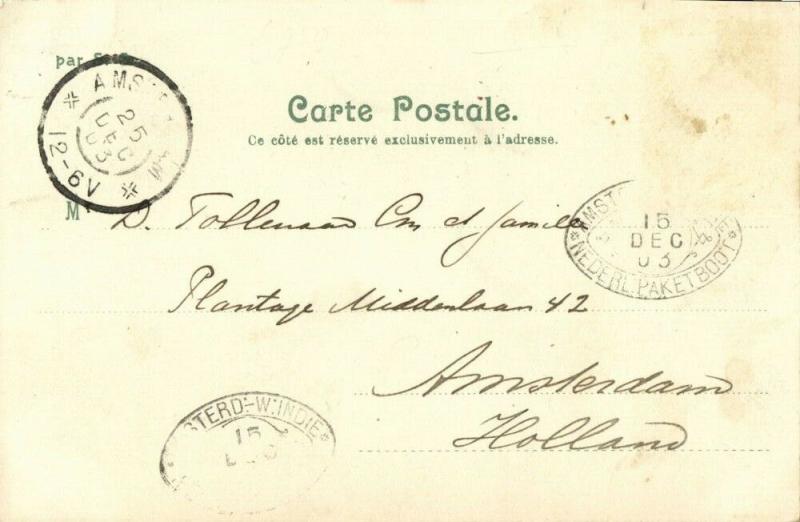 par
AMST
25
DEC
03
12-6V
Carte Postale.
Ce côté est réservé exclusivement à l'adresse.
M
D. Tollenaar Cm et famille
Plantage Middenlaan 42
Amsterdam
Holland
AMST
15
DEC
03
NEDERL. PAKETBOOT
AMSTERD:-W:INDIE
15
DEC